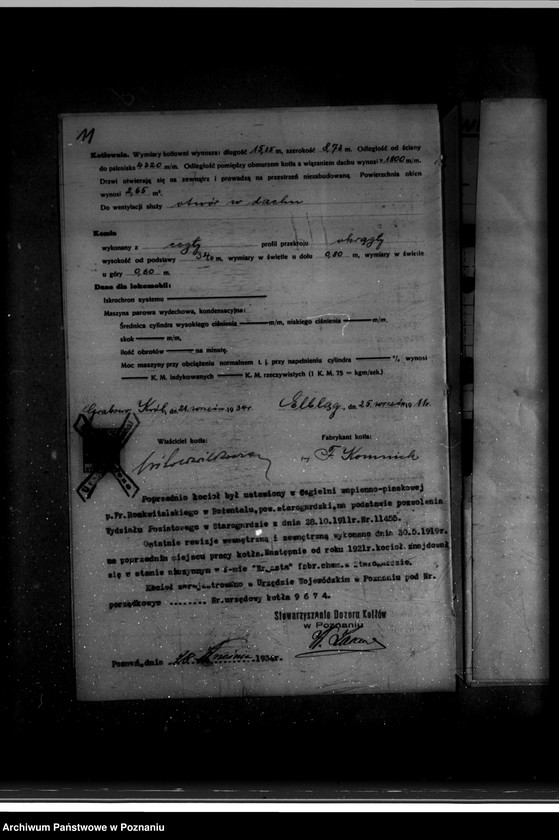 11
Kotłownia. Wymiary kotłowni wynoszą: długość m, szerokość m. Odległość od ściany
do paleniska 4320 m/m. Odległość pomiędzy obmurzem kotła a wiązaniem dachu wynosi 1800 m/m.
Drzwi otwierają się na zewnątrz i prowadzą na przestrzeń niezabudowaną. Powierzchnia okien
wynosi 2,65 m².
Do wentylacji służy otwór w dachu
Komin
wykonany z cegły profil przekroju okrągły
wysokość od podstawy 34 m, wymiary w świetle u dołu 0,80 m, wymiary w świetle
u góry 0,60 m.
Dane dla lokomobil:
Iskrochron systemu
Maszyna parowa wydechowa, kondensacyjna:
Średnica cylindra wysokiego ciśnienia m/m, niskiego ciśnienia m/m.
skok m/m,
ilość obrotów na minutę.
Moc maszyny przy obciążeniu normalnem t. j. przy napełnieniu cylindra %, wynosi
K. M. indykowanych K. M. rzeczywistych (1 K. M. 75 = kgm/sek.)
Grabowo Król. dn 21 wrześn 1934r. Elbląg, dn 25 wrześn 1911r.
Właściciel kotła: Fabrykant kotła:
F. Komnick
Poprzednio kocioł był ustawiony w Cegielni wapienno-piaskowej
p.Fr. w pow. starogardzki, na podstawie pozwolenia
Wydziału Powiatowego w Starogardzie z dnia 28.10.1911r. Nr. 11455.
Ostatnie rewizje wewnętrzną i zewnętrzną wykonano dnia 30.5.1919r.
na poprzednim miejscu pracy kotła. Następnie od roku 1921r. kocioł znajdował
się w stanie nieczynnym w f-mie fabr. chem. w Starogardzie.
Kocioł zarejestrowano w Urzędzie Wojewódzkim w Poznaniu pod Nr.
porządkowym ........ Nr. urzędowy kotła 9674.
Stowarzyszenie Dozoru Kotłów
w Poznaniu
Poznań, dnia 1934r.
Archiwum Państwowe w Poznaniu